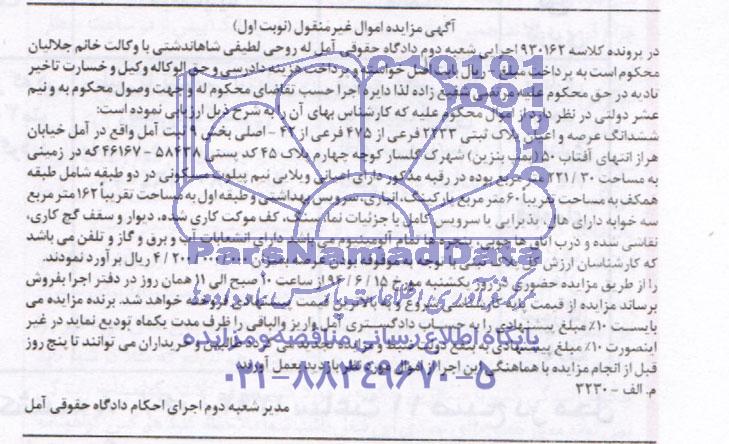 آگهی مزایده اموال غیرمنقول (نوبت اول)
در پرونده کلاسه ۹۳۰۱۶۲ اجرایی شعبه دوم دادگاه حقوقی آمل له روحی لطیفی شاهاندشتی با وکالت خانم جلالیان
محکوم است به پرداخت مبلغ - ریال بابت اصل خواسته و پرداخت هزینه دادرسی و حق الوکاله وکیل و خسارت تاخیر
تادیه در حق محکوم علیه مرتضی شفیع زاده لذا دایره اجرا حسب تقاضای محکوم له و جهت وصول محکوم به و نیم
عشر دولتی در نظر دارد از اموال محکوم علیه که کارشناس بهای آن را به شرح ذیل ارزیابی نموده است:
ششدانگ عرصه و اعیان پلاک ثبتی ۲۲۳۳ فرعی از ۴۷۵ فرعی از ۴۲ - اصلی بخش ۹ ثبت آمل واقع در آمل خیابان
هراز انتهای آفتاب ۵۰ (پمپ بنزین) شهرک گلسار کوچه چهارم پلاک ۴۵ کد پستی ۵۸۴۳۸ - ۴۶۱۶۷ که در زمینی
به مساحت ۳۰ / ۲۲۱ متر مربع بوده در رقبه مذکور دارای اعیانی ویلایی نیم پیلوت مسکونی در دو طبقه شامل طبقه
همکف به مساحت تقریباً ۶۰ متر مربع پارکینگ، انباری، سرویس بهداشتی و طبقه اول به مساحت تقریباً ۱۶۲ متر مربع
سه خوابه دارای هال، پذیرایی با سرویس کامل با جزئیات نما سنگ، کف موکت کاری شده، دیوار و سقف گچ کاری،
نقاشی شده و درب اتاق ها چوبی، پنجره ها تمام آلومینیوم می باشد دارای انشعابات آب و برق و گاز و تلفن می باشد
که کارشناسان ارزش با توجه به موقوفه بودن عرصه ۲۰۰ / ۴ ریال برآورد نمودند.
را از طریق مزایده حضوری در روز یکشنبه مورخ ۹۶/۶/۱۵ از ساعت ۱۰ صبح الی ۱۱ همان روز در دفتر اجرا بفروش
برساند مزایده از قیمت پایه کارشناسی شروع و به بالاترین قیمت پیشنهادی فروخته خواهد شد. برنده مزایده می
بایست ۱۰٪ مبلغ پیشنهادی را به حساب دادگستری آمل واریز والباقی را ظرف مدت یکماه تودیع نماید در غیر
اینصورت ۱۰٪ مبلغ پیشنهادی به نفع دولت ضبط و مزایده تجدید می گردد طالبین و خریداران می توانند تا پنج روز
قبل از انجام مزایده با هماهنگی این اجرا از اموال مورد نظر بازدید بعمل آورند
م. الف - ۳۲۳۰
مدیر شعبه دوم اجرای احکام دادگاه حقوقی آمل
ParsNamadData
پایگاه اطلاع رسانی مناقصه و مزایده
۰۲۱-۸۸۳۴۹۶۷۰-۵